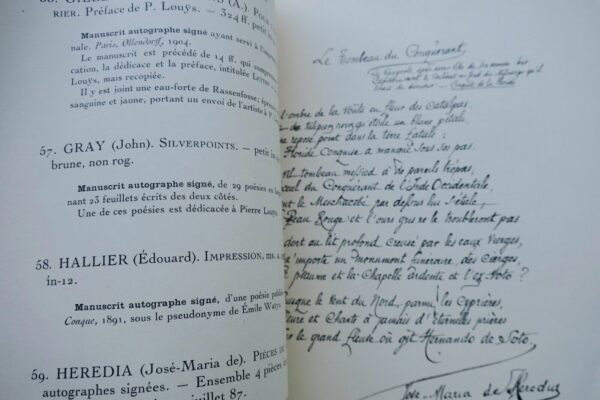 RIER. Préface de P. Louÿs. — 324 ff. petit in
Manuscrit autographe ayant servi à l'im
nale. Paris, Ollendorff, 1904.
Le manuscrit est précédé de 14 ff. qui comp
cation, la dédicace et la préface, intitulée Lettre
Louÿs, mais recopiée.
Il y est joint une eau-forte de Rassenfosse; épreuve
sanguine et jaune, portant un envoi de l'artiste à P
57. GRAY (John). SILVERPOINTS. — petit in
brune, non rog.
Manuscrit autographe signé, de 29 poésies en lang
nant 23 feuillets écrits des deux côtés.
Une de ces poésies est dédicacée à Pierre Louÿs.
58. HALLIER (Édouard). IMPRESSION, ms. a
in-12.
Manuscrit autographe signé, d'une poésie publiée
Conque, 1891, sous le pseudonyme de Émile Watyn.
59. HEREDIA (José-Maria de). PIÈCES
autographes signées. — Ensemble 4 pièces in
juillet 87.
Le Tombeau du Conquérant,
l'ombre de la voûte en fleur des Catalpas
tulipiers noirs qu'étoile un blanc pétale,
repose point dans la terre fatale;
Floride Conquise a manqué sous ses pas.
vil tombeau messied à de pareils trépas,
ceul du Conquérant de l'Inde Occidentale,
le Meschacébé par dessus lui s'étale;
Peau Rouge et l'ours gris ne le troubleront pas.
dort au lit profond creusé par les eaux vierges,
d'importe un monument funéraire, des cierges,
psaume et la Chapelle ardente et l'ex voto?
uisque le vent du Nord, parmi les Cyprières,
leure et chante à jamais d'éternelles prières
r le grand fleuve où gît Hernando de Soto.
José-Maria de Heredia